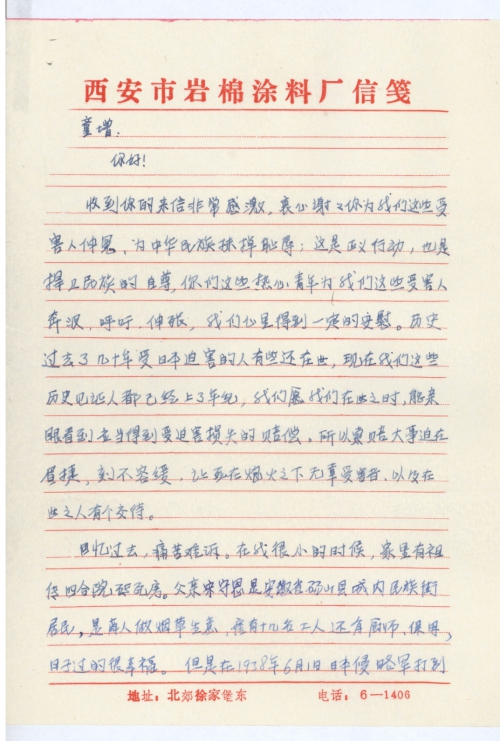 西安市岩棉涂料厂信笺
童增:
你好!
收到你的来信非常感激,衷心谢谢你为我们这些受
害人伸冤,为中华民族抹掉耻辱;这是正义行动,也是
捍卫民族的自尊,你们这些热心青年为我们这些受害人
奔泯,呼吁,伸张,我们心里得到一定的安慰。历史
过去了几十年受日本迫害的人有些还在世,现在我们这些
历史见证人都已经上了年纪,我们愿我们在世之时,能亲
眼看到应当得到受迫害损失的赔偿。所以索赔大事迫在
眉捷,刻不容缓,让死在烟火之下无辜受害者,以及在
世之人有个交待。
回忆过去,痛苦难诉。在我很小的时候,家里有祖
传四合院砖瓦房。父亲宋守恩是安徽省砀山县城内民族街
居民,是商人做烟草生意,雇有十几名工人还有厨师、保姆,
日子过的很幸福。但是在1938年6月1日日本侵略军打到
地址:北郊徐家堡东 电话:6—1406